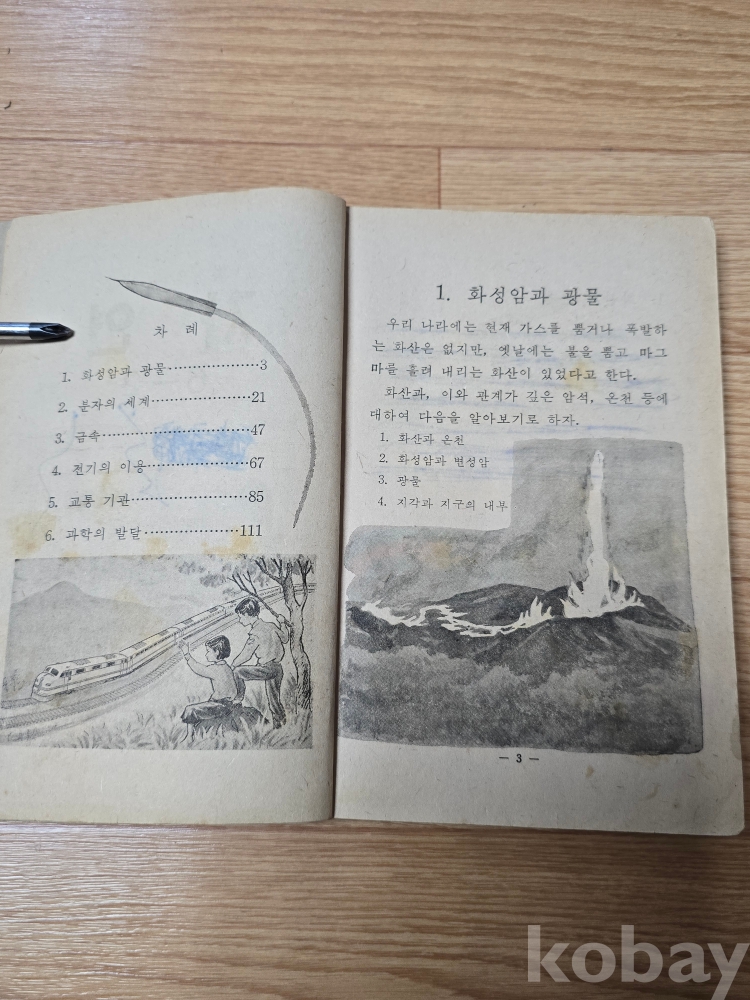 차 례
1. 화성암과 광물··················3
2. 분자의 세계····················21
3. 금속······························47
4. 전기의 이용····················67
5. 교통 기관························85
6. 과학의 발달···················111
1. 화성암과 광물
우리 나라에는 현재 가스를 뿜거나 폭발하
는 화산은 없지만, 옛날에는 불을 뿜고 마그
마를 흘려 내리는 화산이 있었다고 한다.
화산과, 이와 관계가 깊은 암석, 온천 등에
대하여 다음을 알아보기로 하자.
1. 화산과 온천
2. 화성암과 변성암
3. 광물
4. 지각과 지구의 내부
— 3 —
kobay